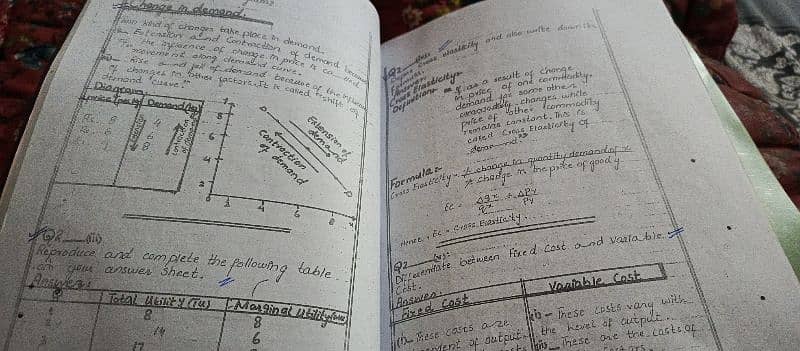 Change in demand.
kind of changes take place in demand.
Extension and Contraction of demand
The influence of change in price is called
movement along demand curve.
Rise and fall of demand because of the
changes in other factors. It is called shift of
demand curve"
Diagram
Demand
Extension of
demand
Contraction
of demand
8
6
4
2
0 2 4 6 8
Q2 (iii)
Reproduce and complete the following table
on your answer sheet.
Answer:
Total Utility (TU) Marginal Utility
1 8 8
2 14 6
3 17
Q2
cross elasticity and also write down its
Cross Elasticity:-
Definition:- as a result of change
in price of one commodity,
demand for some other
commodity changes while
price of other commodity
remains constant. This is
called Cross Elasticity of
demand"
Formula:-
Cross Elasticity = % change in quantity demand of x
% change in the price of good y
Ec = Δqx ÷ ΔPy
qx Py
Hence, Ec = Cross Elasticity.
Q2
Differentiate between Fixed Cost and Variable
Cost.
Answer:
Fixed Cost Variable Cost
(i)- These costs are (i)- These costs vary with
of output. the level of output.
(ii)- These are the costs of